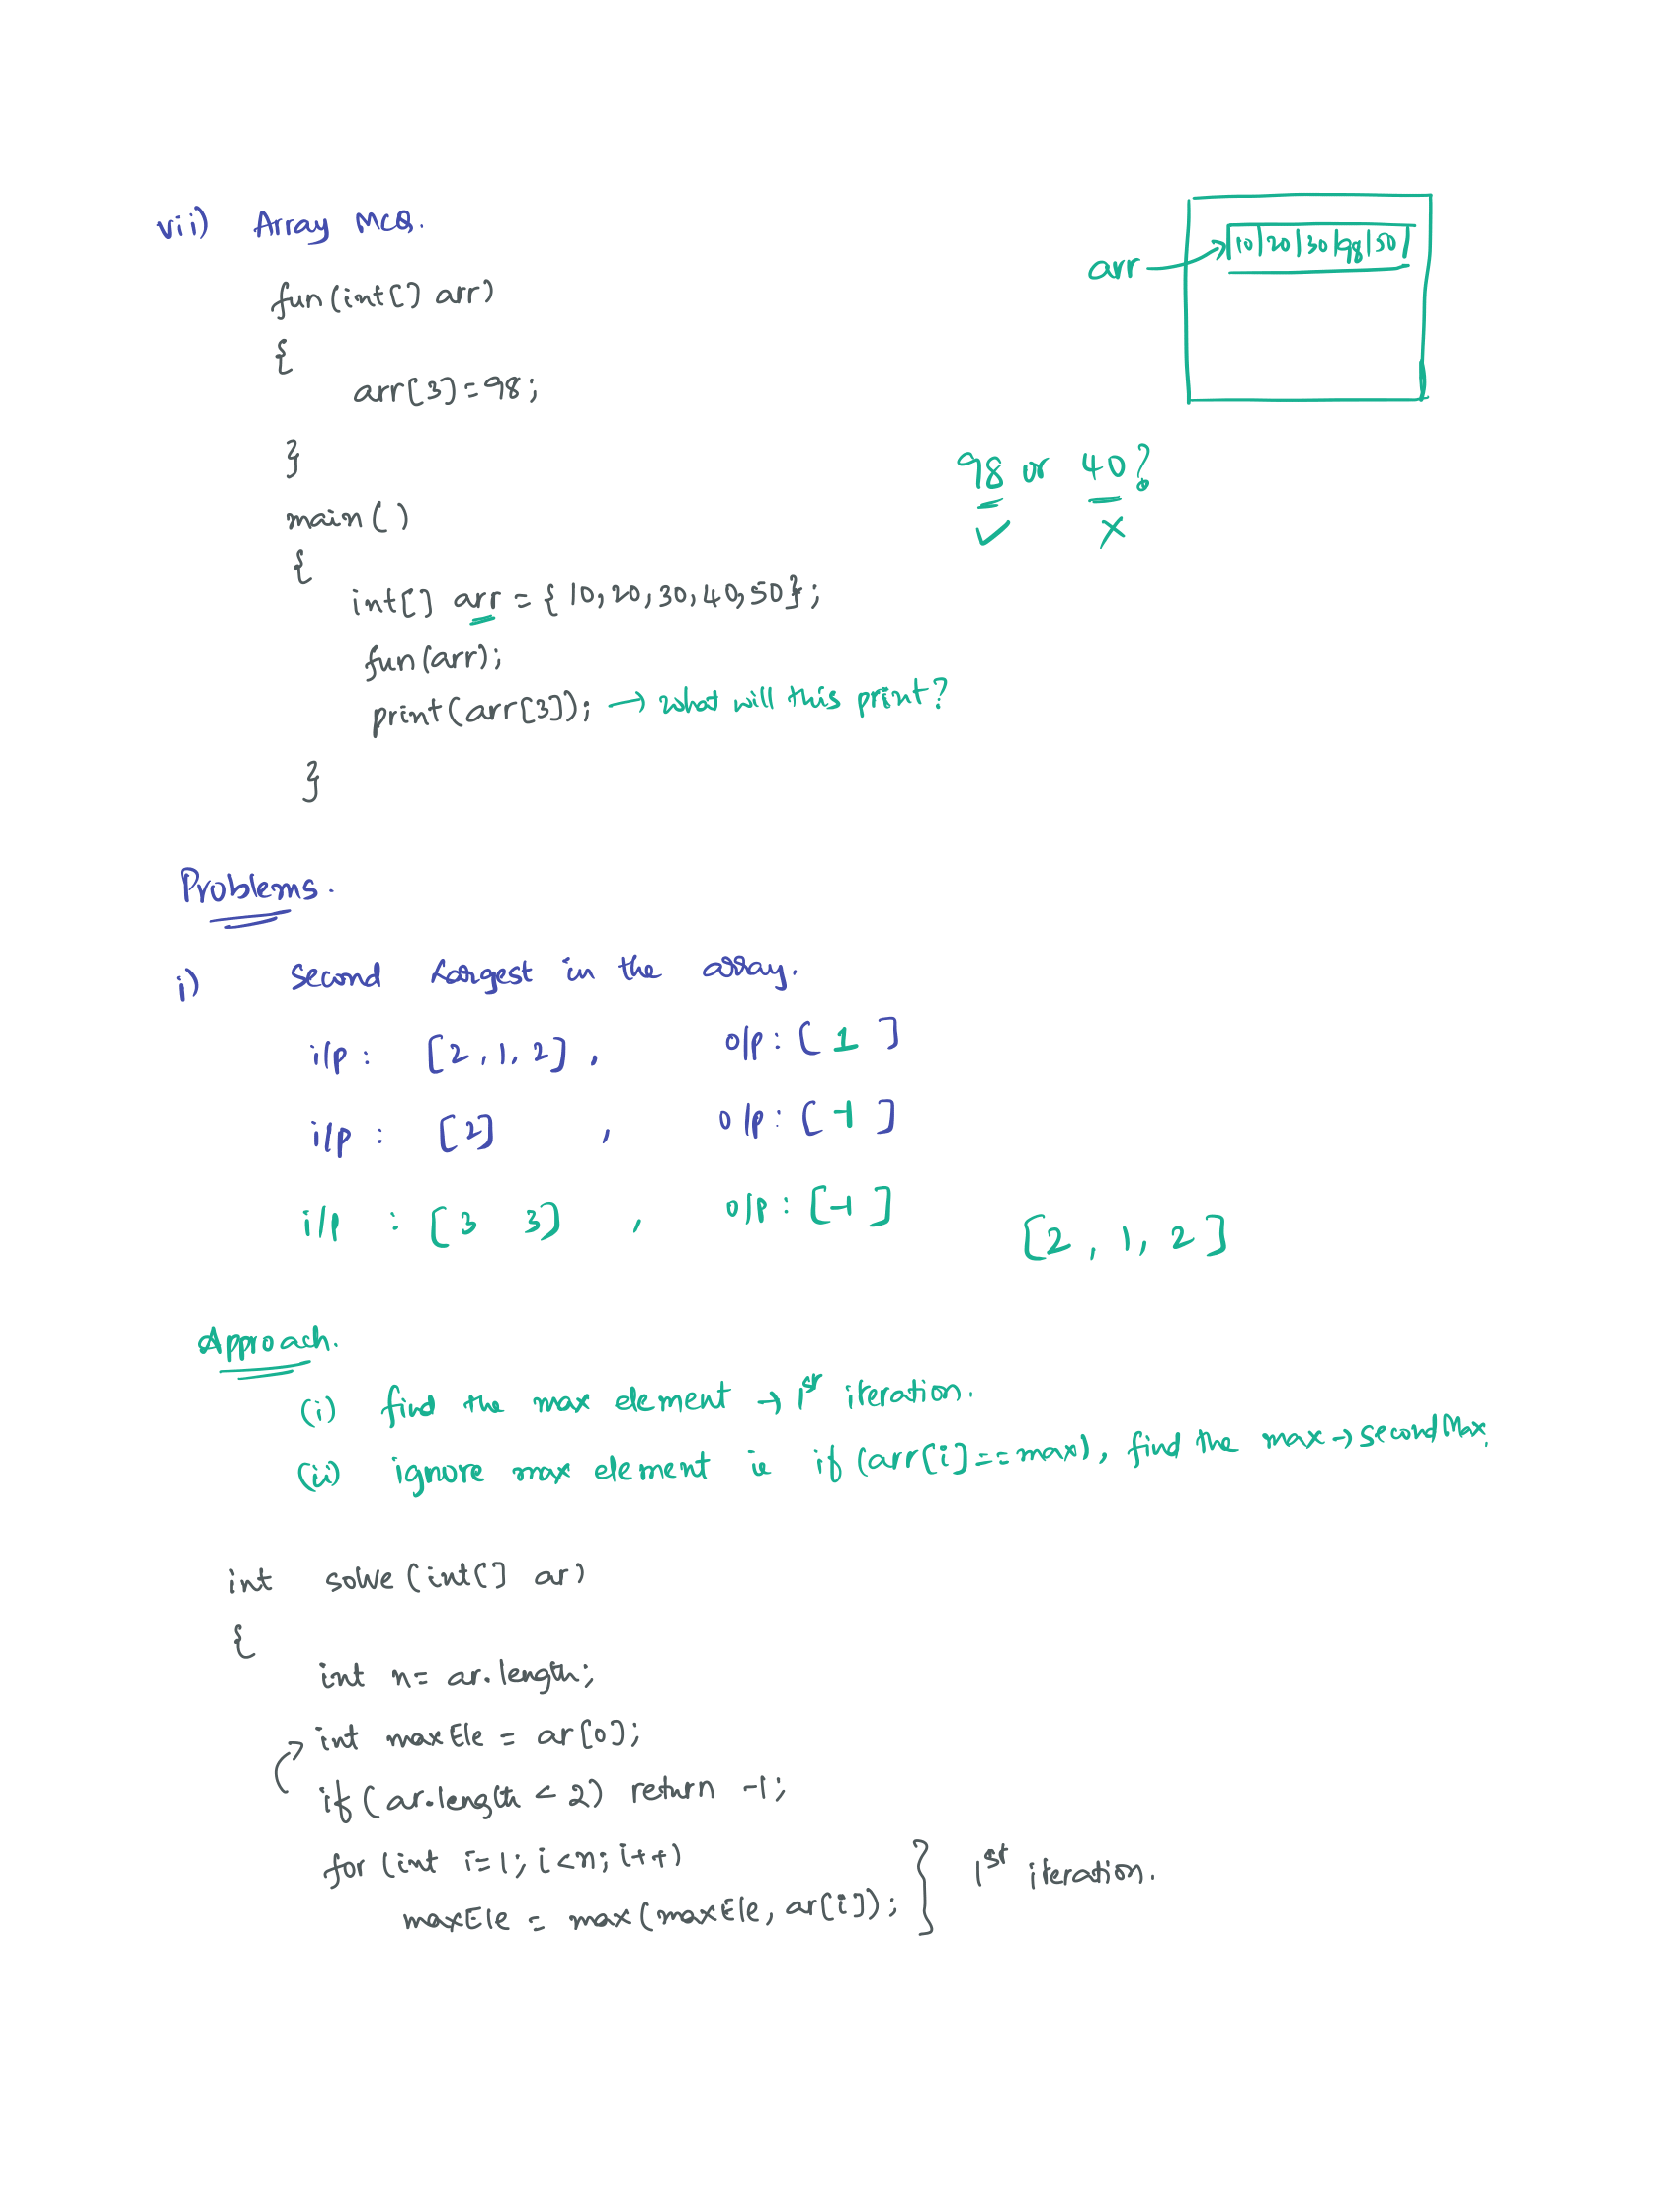 vii) Array MCQ.
arr → 10|20|30|98|50
fun(int[] arr)
{
arr[3]=98;
}
98 or 40?
✓ X
main()
{
int[] arr = {10,20,30,40,50};
fun(arr);
print(arr[3]); → what will this print?
}
Problems.
i) Second Largest in the array.
i/p : [2,1,2] , o/p : [ 1 ]
i/p : [2] , o/p : [ -1 ]
i/p : [3 3] , o/p : [-1]
[2, 1, 2]
Approach.
(i) find the max element → 1st iteration.
(ii) ignore max element ie if (arr[i]==max), find the max → secondMax.
int solve(int[] ar)
{
int n= ar.length;
int maxEle = ar[0];
if(ar.length < 2) return -1;
for (int i=1; i<n; i++)
maxEle = max(maxEle, ar[i]); } 1st iteration.